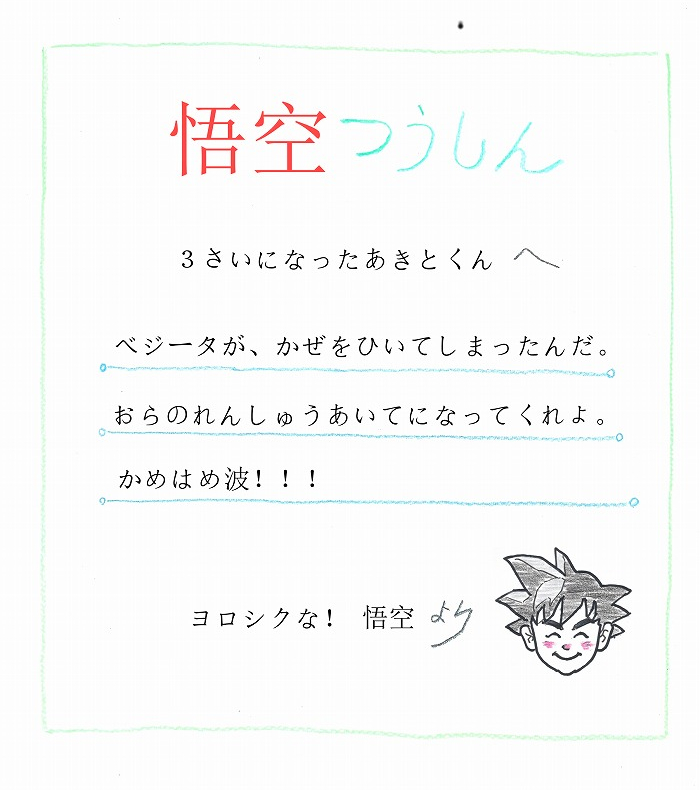 悟空つうしん
3さいになったあきとくん へ
ベジータが、かぜをひいてしまったんだ。
おらのれんしゅうあいてになってくれよ。
かめはめ波！！！
ヨロシクな！ 悟空 より